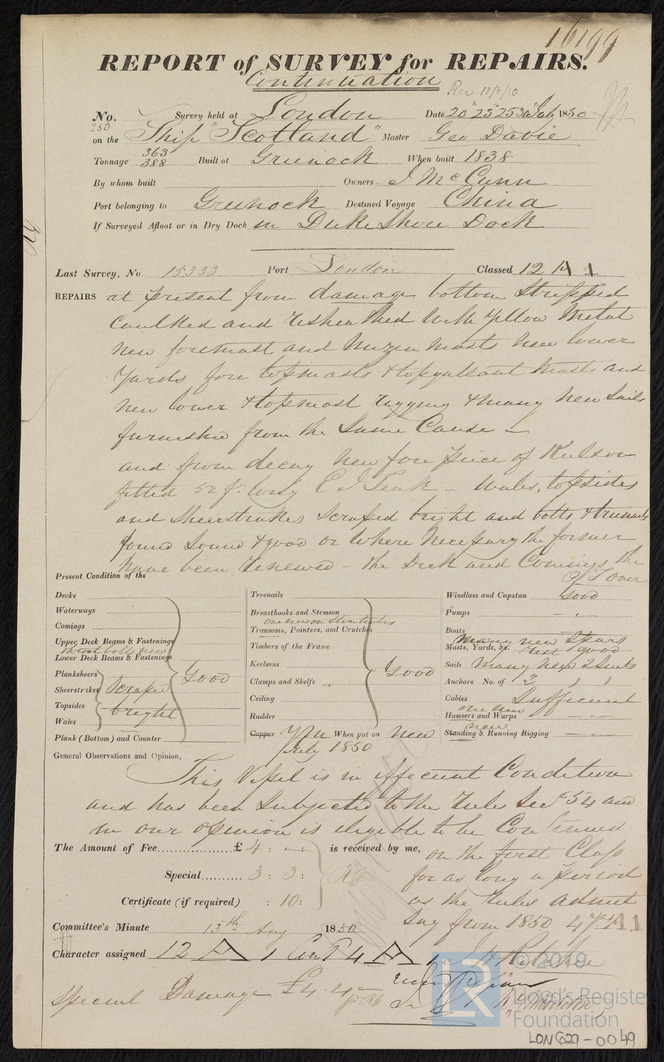 16199
REPORT of SURVEY for REPAIRS.
Continuation
No. 280 Survey held at London Date 1850
on the Ship "Scotland" Master Geo Davie
Tonnage 363 388 Built at Greenock When built 1838
By whom built Owners J McCunn
Port belonging to Greenock Destined Voyage China
If Surveyed Afloat or in Dry Dock in Duke Shore Dock
Last Survey, No. 15333 Port London Classed 12 A 1
REPAIRS at present from damage bottom Stripped
Caulked and resheathed with Yellow Metal
New foremast and Mizen Masts new lower
Yards fore topmasts & topgallant Masts and
new lower & topmast rigging & many new Sails
furnished from the Same Cause
and from decay new fore piece of Keelson
fitted 52 ft long E I Teak - Wales, topsides
and Sheerstrakes scraped bright and bolts & treenails
found Sound & good or where necessary the former
have been renewed - the Deck and Comings the
Present Condition of the
Decks
Waterways
Comings
Upper Deck Beams & Fastenings
Lower Deck Beams & Fastenings
Planksheers
Sheerstrakes Scraped
Topsides bright
Wales
Plank (Bottom) and Counter
Good
Treenails
Breasthooks and Stemson
Transoms, Pointers, and Crutches
Timbers of the Frame
Keelsons
Clamps and Shelfs
Ceiling
Rudder
Copper YM When put on New
July 1850
Good
Windlass and Capstan Good
Pumps
Boats
many new Spars
Masts, Yards, &c. rest good
Sails Many New 2 Suits
Anchors No. of 3
Cables Sufficient
Hawsers and Warps
Standing & Running Rigging
General Observations and Opinion,
This Vessel is in efficient Condition
and has been Subjected to the Rule Sec 54 and
in our opinion is eligible to be Continued
on the first Class
for as long a period
as the Rules admit
Say from 1850 4 Yrs A 1
The Amount of Fee £ 4 : - : - is received by me,
Special 3 : 3 :
Certificate (if required) : 10 :
Committee's Minute 13th Aug 1850
Character assigned 12 A 1 Cont 4 A 1
Special Damage £4.4
© 2019
Lloyd's Register
Foundation
LON629-0049